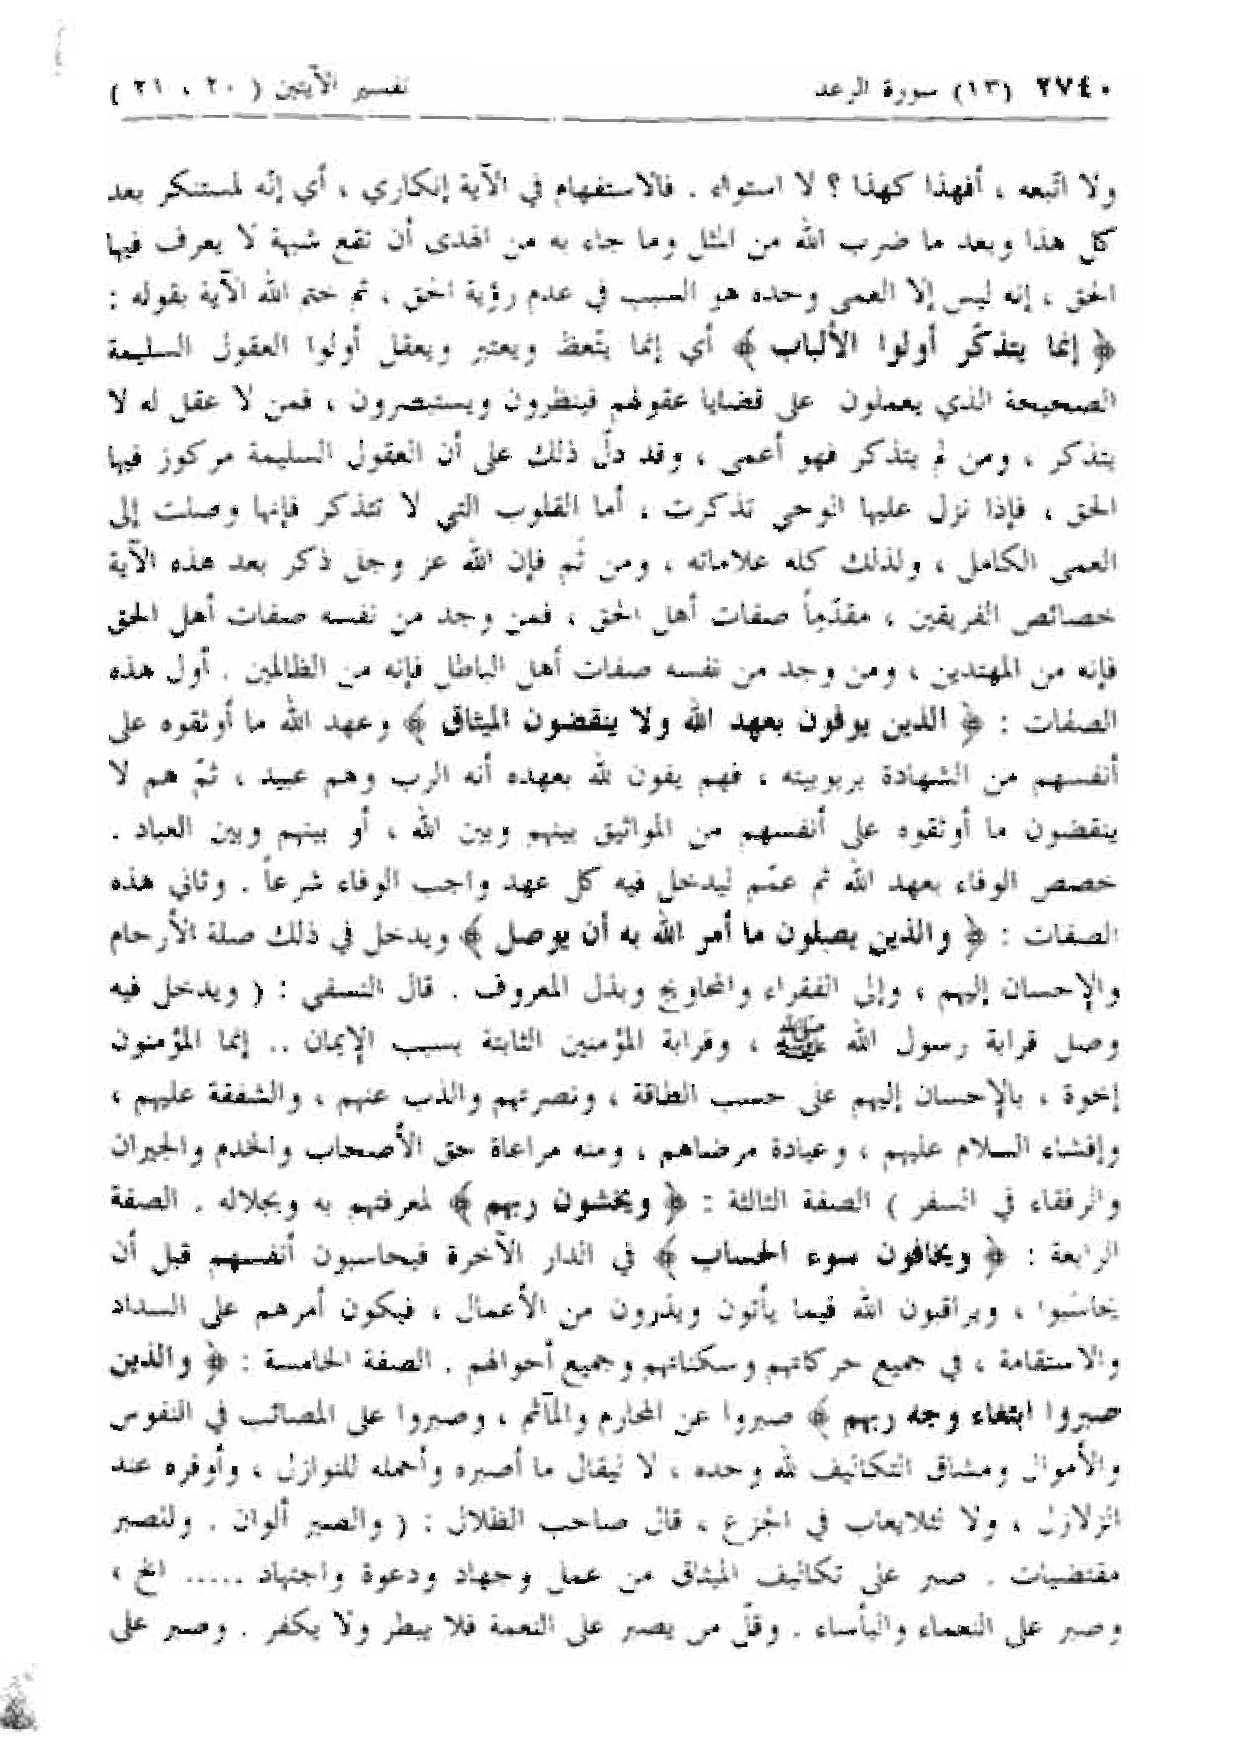 ٢٧٤٠ (١٣) سورة الرعد تفسير الآيتين ( ٢٠ ، ٢١ )
ولا اتّبعه ، أفهذا كهذا ؟ لا استواء . فالاستفهام في الآية إنكاري ، أي إنّه لمستنكر بعد
كل هذا وبعد ما ضرب الله من المثل وما جاء به من الهدى أن تقع شبهة لا يعرف فيها
الحق ، إنه ليس إلا العمى وحده هو السبب في عدم رؤية الحق ، ثم ختم الله الآية بقوله :
﴿ إنما يتذكّر أولوا الألباب ﴾ أي إنما يتّعظ ويعتبر ويعقل أولوا العقول السليمة
الصحيحة الذي يعملون على قضايا عقولهم فينظرون ويستبصرون ، فمن لا عقل له لا
يتذكر ، ومن لم يتذكر فهو أعمى ، وقد دلّ ذلك على أن العقول السليمة مركوز فيها
الحق ، فإذا نزل عليها الوحي تذكرت ، أما القلوب التي لا تتذكر فإنها وصلت إلى
العمى الكامل ، ولذلك كله علاماته ، ومن ثَم فإن الله عز وجل ذكر بعد هذه الآية
خصائص الفريقين ، مقدّماً صفات أهل الحق ، فمن وجد من نفسه صفات أهل الحق
فإنه من المهتدين ، ومن وجد من نفسه صفات أهل الباطل فإنه من الظالمين . أول هذه
الصفات : ﴿ الذين يوفون بعهد الله ولا ينقضون الميثاق ﴾ وعهد الله ما أوثقوه على
أنفسهم من الشهادة بربوبيته ، فهم يفون لله بعهده أنه الرب وهم عبيد ، ثمّ هم لا
ينقضون ما أوثقوه على أنفسهم من المواثيق بينهم وبين الله ، أو بينهم وبين العباد .
خصص الوفاء بعهد الله ثم عمّم ليدخل فيه كل عهد واجب الوفاء شرعاً . وثاني هذه
الصفات : ﴿ والذين يصلون ما أمر الله به أن يوصل ﴾ ويدخل في ذلك صلة الأرحام
والإحسان إليهم ، وإلى الفقراء والمحاويج وبذل المعروف . قال النسفي : ( ويدخل فيه
وصل قرابة رسول الله ﷺ ، وقرابة المؤمنين الثابتة بسبب الإيمان .. إنما المؤمنون
إخوة ، بالإحسان إليهم على حسب الطاقة ، ونصرتهم والذب عنهم ، والشفقة عليهم ،
وإفشاء السلام عليهم ، وعيادة مرضاهم ، ومنه مراعاة حق الأصحاب والخدم والجيران
والرفقاء في السفر ) الصفة الثالثة : ﴿ ويخشون ربهم ﴾ لمعرفتهم به وبجلاله . الصفة
الرابعة : ﴿ ويخافون سوء الحساب ﴾ في الدار الآخرة فيحاسبون أنفسهم قبل أن
يحاسَبوا ، ويراقبون الله فيما يأتون ويذرون من الأعمال ، فيكون أمرهم على السداد
والاستقامة ، في جميع حركاتهم وسكناتهم وجميع أحوالهم . الصفة الخامسة : ﴿ والذين
صبروا ابتغاء وجه ربهم ﴾ صبروا عن المحارم والمآثم ، وصبروا على المصائب في النفوس
والأموال ومشاق التكاليف لله وحده ، لا ليقال ما أصبره وأحمله للنوازل ، وأوقره عند
الزلازل ، ولا لئلايعاب في الجزع ، قال صاحب الظلال : ( والصبر ألوان . وللصبر
مقتضيات . صبر على تكاليف الميثاق من عمل وجهاد ودعوة واجتهاد ..... الخ ،
وصبر على النعماء والبأساء . وقلّ من يصبر على النعمة فلا يبطر ولا يكفر . وصبر على